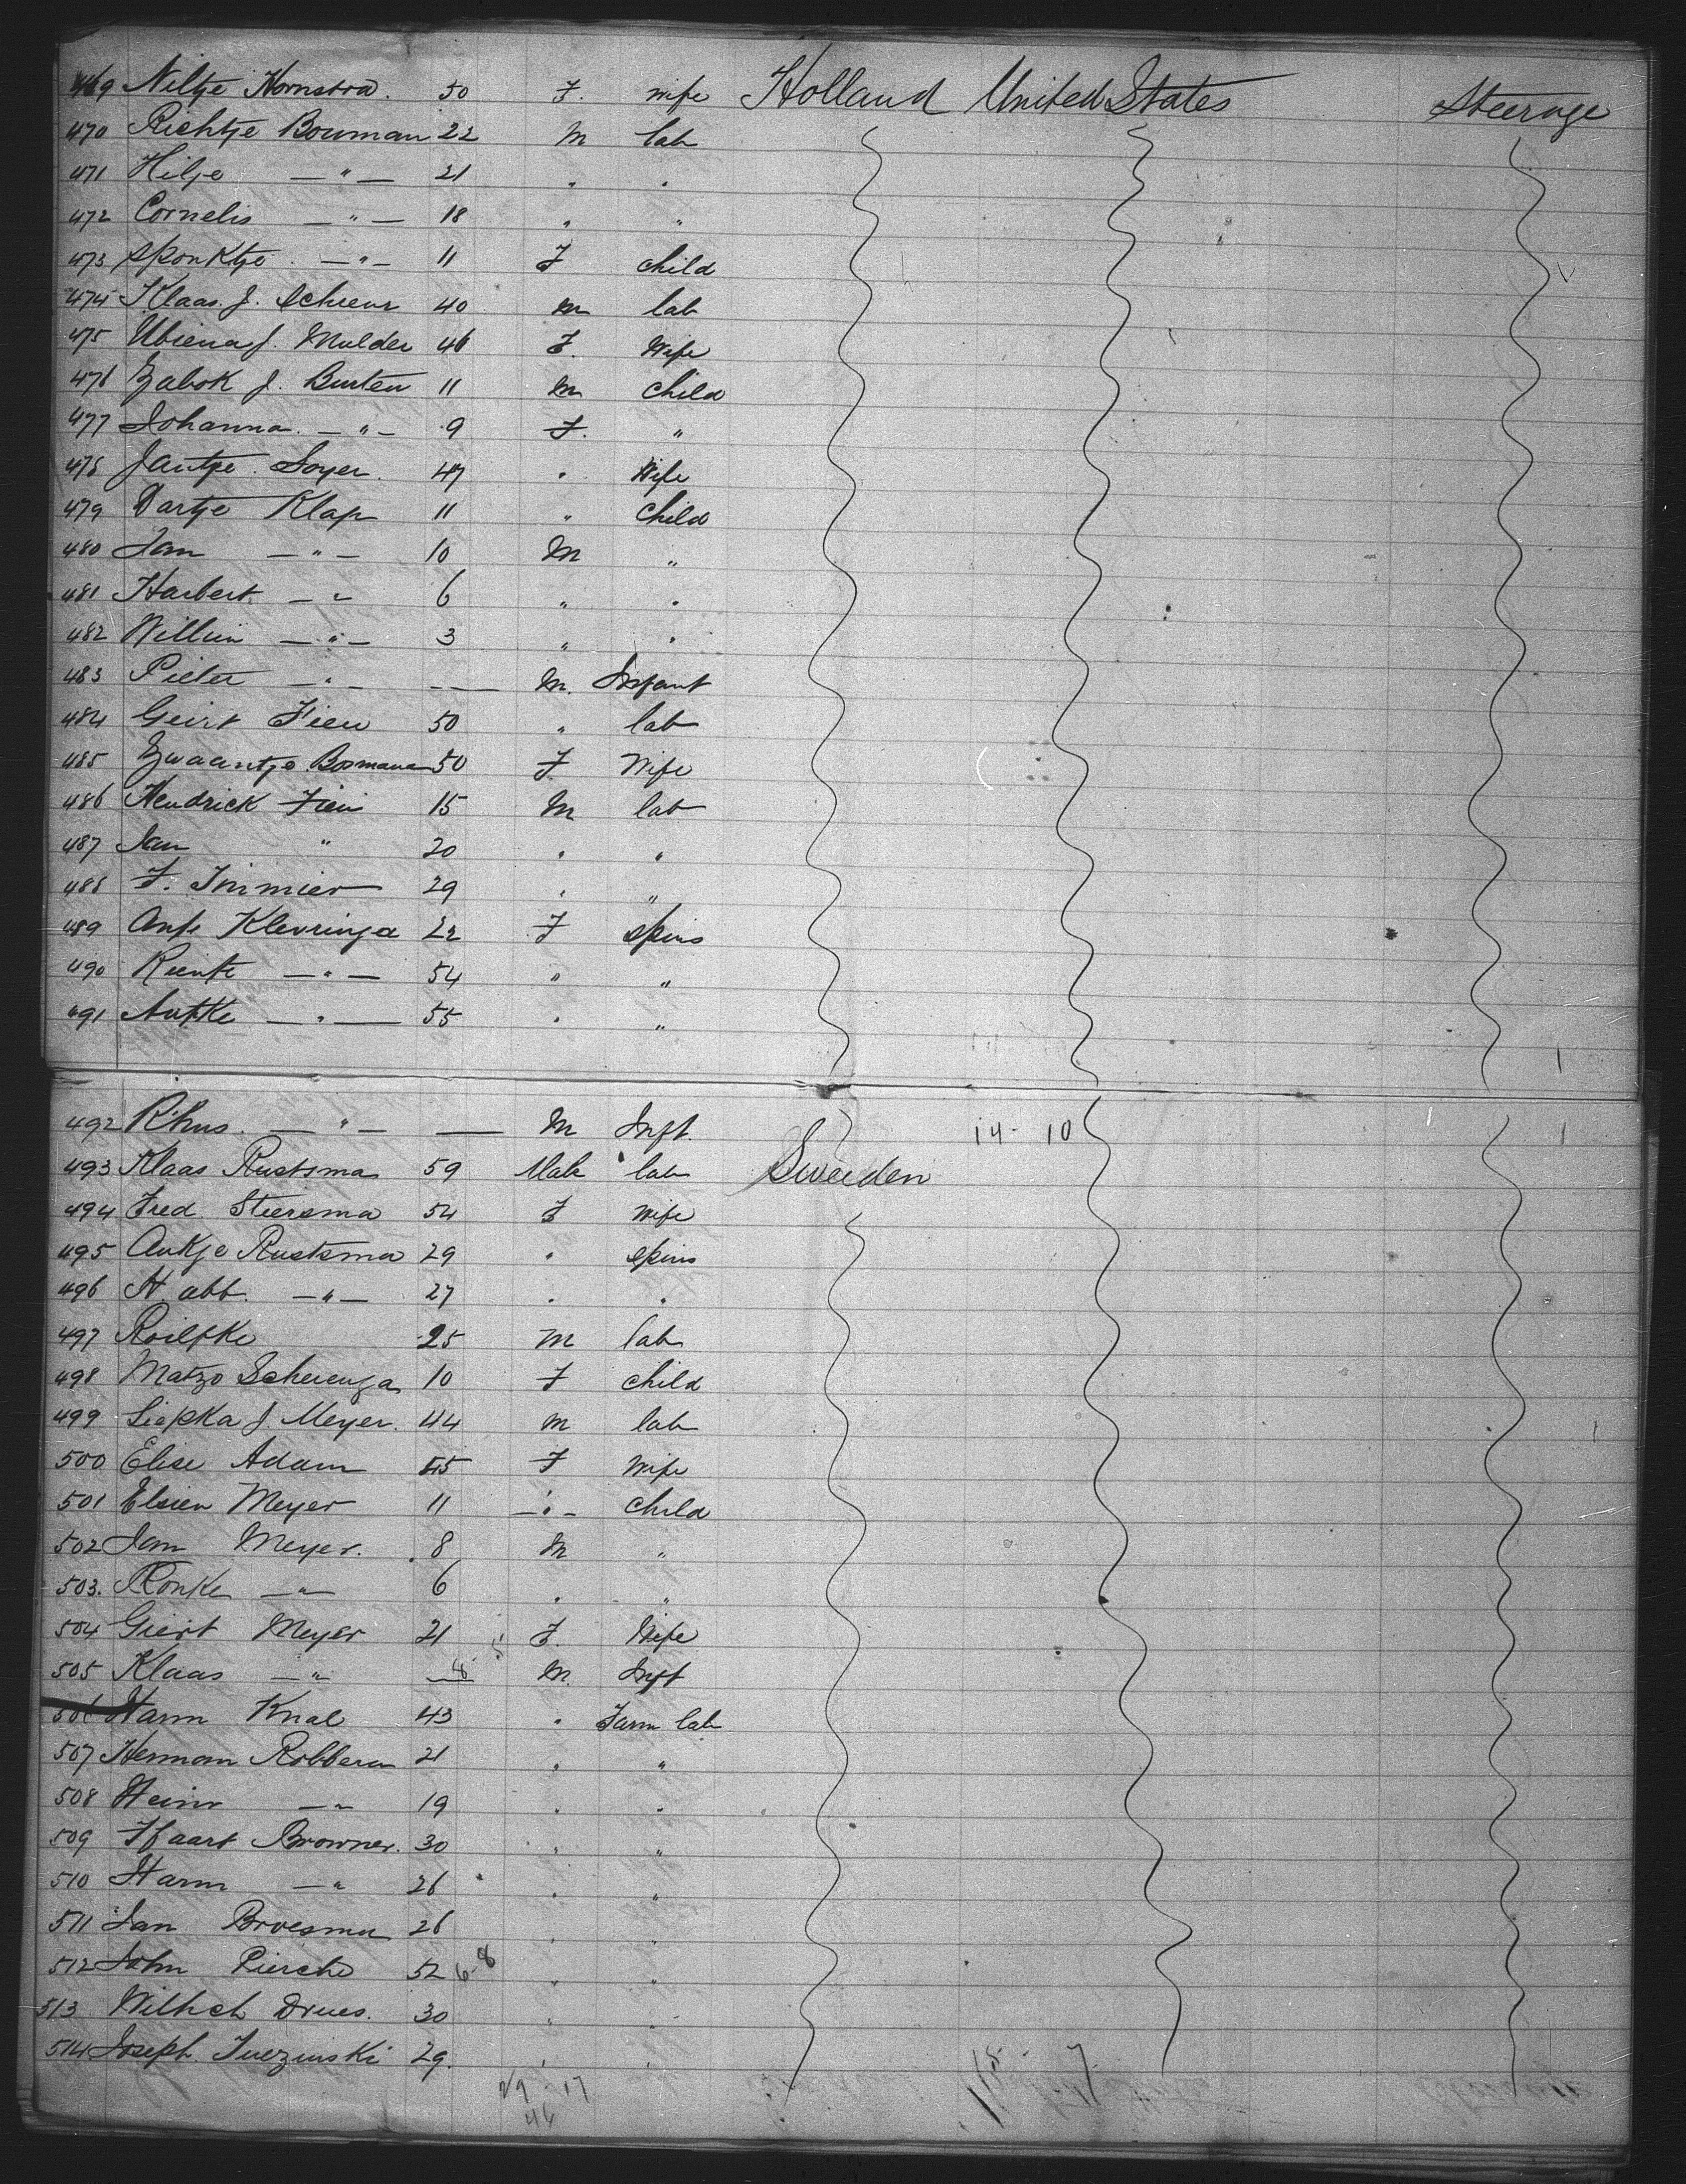 469 Niltje Hornstra. 50 F. wife Holland United States Steerage
470 Richtje Bouman 22 M lab
471 Hilje — " — 21 " "
472 Cornelis — " — 18 " "
473 Sponktje — " — 11 F child
474 Klaas. J. Schieur 40 m lab
475 Ubiena J. Mulder 46 F. Wife
476 Zabok J. Burten 11 m child
477 Johanna. — " — 9 F. "
478 Jantje. Soyer. 47 " Wife
479 Dartje Klap 11 " Child
480 Jan — " — 10 M "
481 Harbert — " 6 " "
482 Willim — " — 3 " "
483 Pieter — " — — M. Infant
484 Geirt Fien 50 " lab
485 Zwaantje Bosmana 50 F Wife
486 Hendrick Fien 15 M lab
487 Jan " 20 " "
488 F. Timmier 29 " "
489 Klevringa 22 F spins
490 — " — 54 " "
491 — " — 55 " "
492 Rhus. — " — — M Inft. 14 - 10
493 Klaas Rustsma 59 Male lab Sweeden
494 Fred Steersma 54 F wife
495 Aukje Rustsma 29 " spins
496 H abb. — " — 27 " "
497 Roilfke 25 M lab
498 Matzo Scherenga 10 F child
499 Siepka J. Meyer. 44 m lab
500 Elise Adam 45 F Wife
501 Elsien Meyer 11 — " — child
502 Jan Meyer. 8 M "
503. Ronke — " 6 " "
504 Giert Meyer 21 F. Wife
505 Klaas — " — M. Inft
506 Harm Knal 43 " Farm lab
507 Herman Robbern 21 " "
508 Heinr — " 19 " "
509 Ifaart Browner. 30 " "
510 Harm — " 26 " "
511 Jan Broesma 26 " "
512 John Pierche 52 6-8 " "
513 Drues. 30 " "
514 Joseph. Tuezinski 29. " "
29 - 17
46